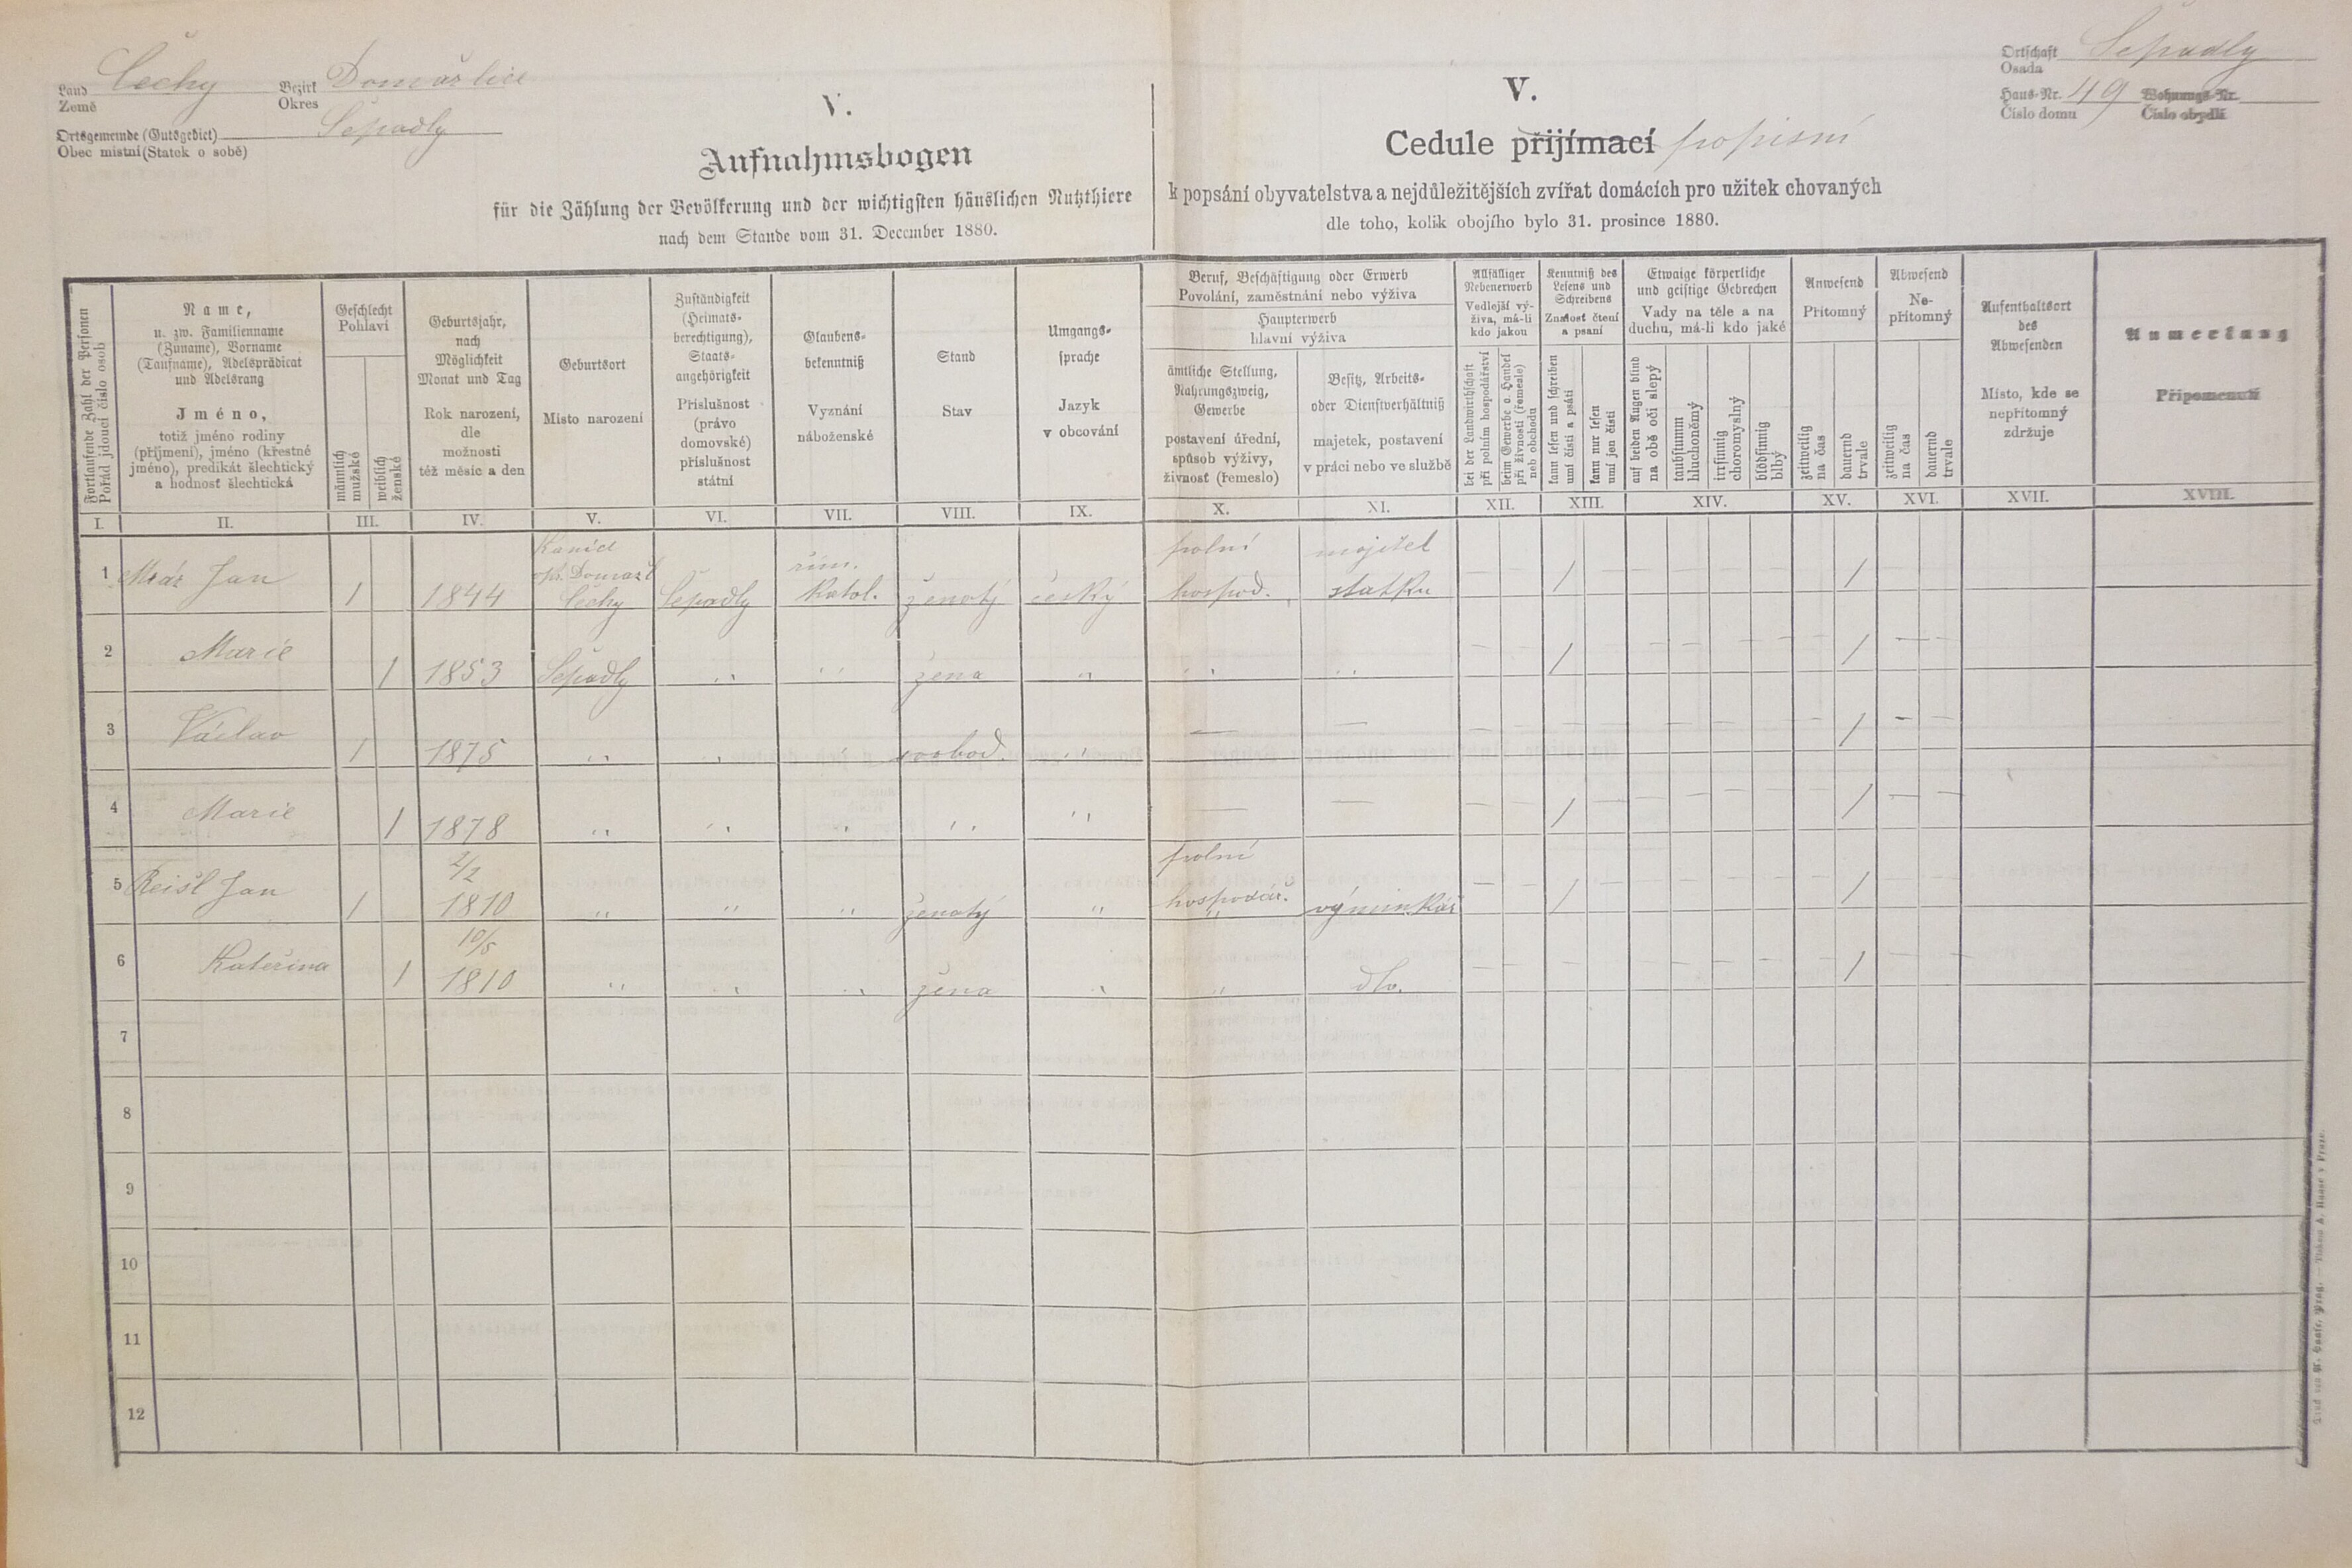 Land Čechy Bezirk Domažlice
Země Okres
Ortsgemeinde (Gutsgebiet) Šepadly
Obec místní (Statek o sobě)
Ortschaft Šepadly
Osada
Haus-Nr. 49 Wohnungs-Nr.
Číslo domu Číslo obydlí
V.
Aufnahmsbogen
für die Zählung der Bevölkerung und der wichtigsten häuslichen Nutzthiere
nach dem Stande vom 31. December 1880.
V.
Cedule přijímací popisní
k popsání obyvatelstva a nejdůležitějších zvířat domácích pro užitek chovaných
dle toho, kolik obojího bylo 31. prosince 1880.
Fortlaufende Zahl der Personen
Pořád jdoucí číslo osob
Name,
u. zw. Familienname
(Zuname), Vorname
(Taufname), Adelsprädicat
und Adelsrang
Jméno,
totiž jméno rodiny
(příjmení), jméno (křestné
jméno), predikát šlechtický
a hodnosť šlechtická
Geschlecht
Pohlaví
männlich
mužské
weiblich
ženské
Geburtsjahr,
nach
Möglichkeit
Monat und Tag
Rok narození,
dle
možnosti
též měsíc a den
Geburtsort
Místo narození
Zuständigkeit
(Heimats-
berechtigung),
Staats-
angehörigkeit
Příslušnost
(právo
domovské)
příslušnost
státní
Glaubens-
bekenntniß
Vyznání
náboženské
Stand
Stav
Umgangs-
sprache
Jazyk
v obcování
Beruf, Beschäftigung oder Erwerb
Povolání, zaměstnání nebo výživa
Haupterwerb
hlavní výživa
ämtliche Stellung,
Nahrungszweig,
Gewerbe
postavení úřední,
spůsob výživy,
živnosť (řemeslo)
Besitz, Arbeits-
oder Dienstverhältniß
majetek, postavení
v práci nebo ve službě
Allfälliger
Nebenerwerb
Vedlejší vý-
živa, má-li
kdo jakou
bei der Landwirthschaft
při polním hospodářství
beim Gewerbe o. Handel
při živnosti (řemesle)
neb obchodu
Kenntniß des
Lesens und
Schreibens
Znalost čtení
a psaní
kann lesen und schreiben
umí čísti a psáti
kann nur lesen
umí jen čísti
Etwaige körperliche
und geistige Gebrechen
Vady na těle a na
duchu, má-li kdo jaké
auf beiden Augen blind
na obě oči slepý
taubstumm
hluchoněmý
irrsinnig
choromyslný
blödsinnig
blbý
Anwesend
Přítomný
zeitweilig
na čas
dauernd
trvale
Abwesend
Ne-
přítomný
zeitweilig
na čas
dauernd
trvale
Aufenthaltsort
des
Abwesenden
Místo, kde se
nepřítomný
zdržuje
Anmerkung
Připomenutí
I. II. III. IV. V. VI. VII. VIII. IX. X. XI. XII. XIII. XIV. XV. XVI. XVII. XVIII.
Kanice řím. polní majitel
okr. Domažl
1 Jan 1 1844 Čechy Šepadly katol. ženatý český hospod. statku — — / — — — — — — / — —
2 Marie 1 1853 Šepadly " " žena " " " — — / — — — — — — / — —
3 Václav 1 1875 " " " svobod. " — — — — — — — — — — — / — —
4 Marie 1 1878 " " " " " — — — — / — — — — — — / — —
2/2 polní
5 Reisl Jan 1 1810 " " " ženatý " hospodář. výminkář — — / — — — — — — / — —
10/5
6 Kateřina 1 1810 " " " žena " " dto. — — — — — — — — — / — —
7
8
9
10
11
12